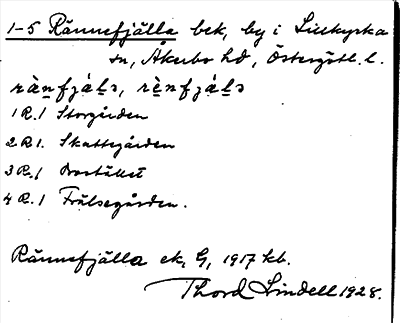 1-5 Rännefjälla bek, by i Lillkyrka
sn, Åkerbo hd, Östergötl. l.
rä̀nfjä́ls, rè̤nfjä́ls
1 R. 1 Storgården
2 R. 1. Skattegården
3 R. 1 Prostället
4 R. 1 Frälsegården.
Rännefjälla ek, G, 1917 kb.
Thord Lindell 1928.